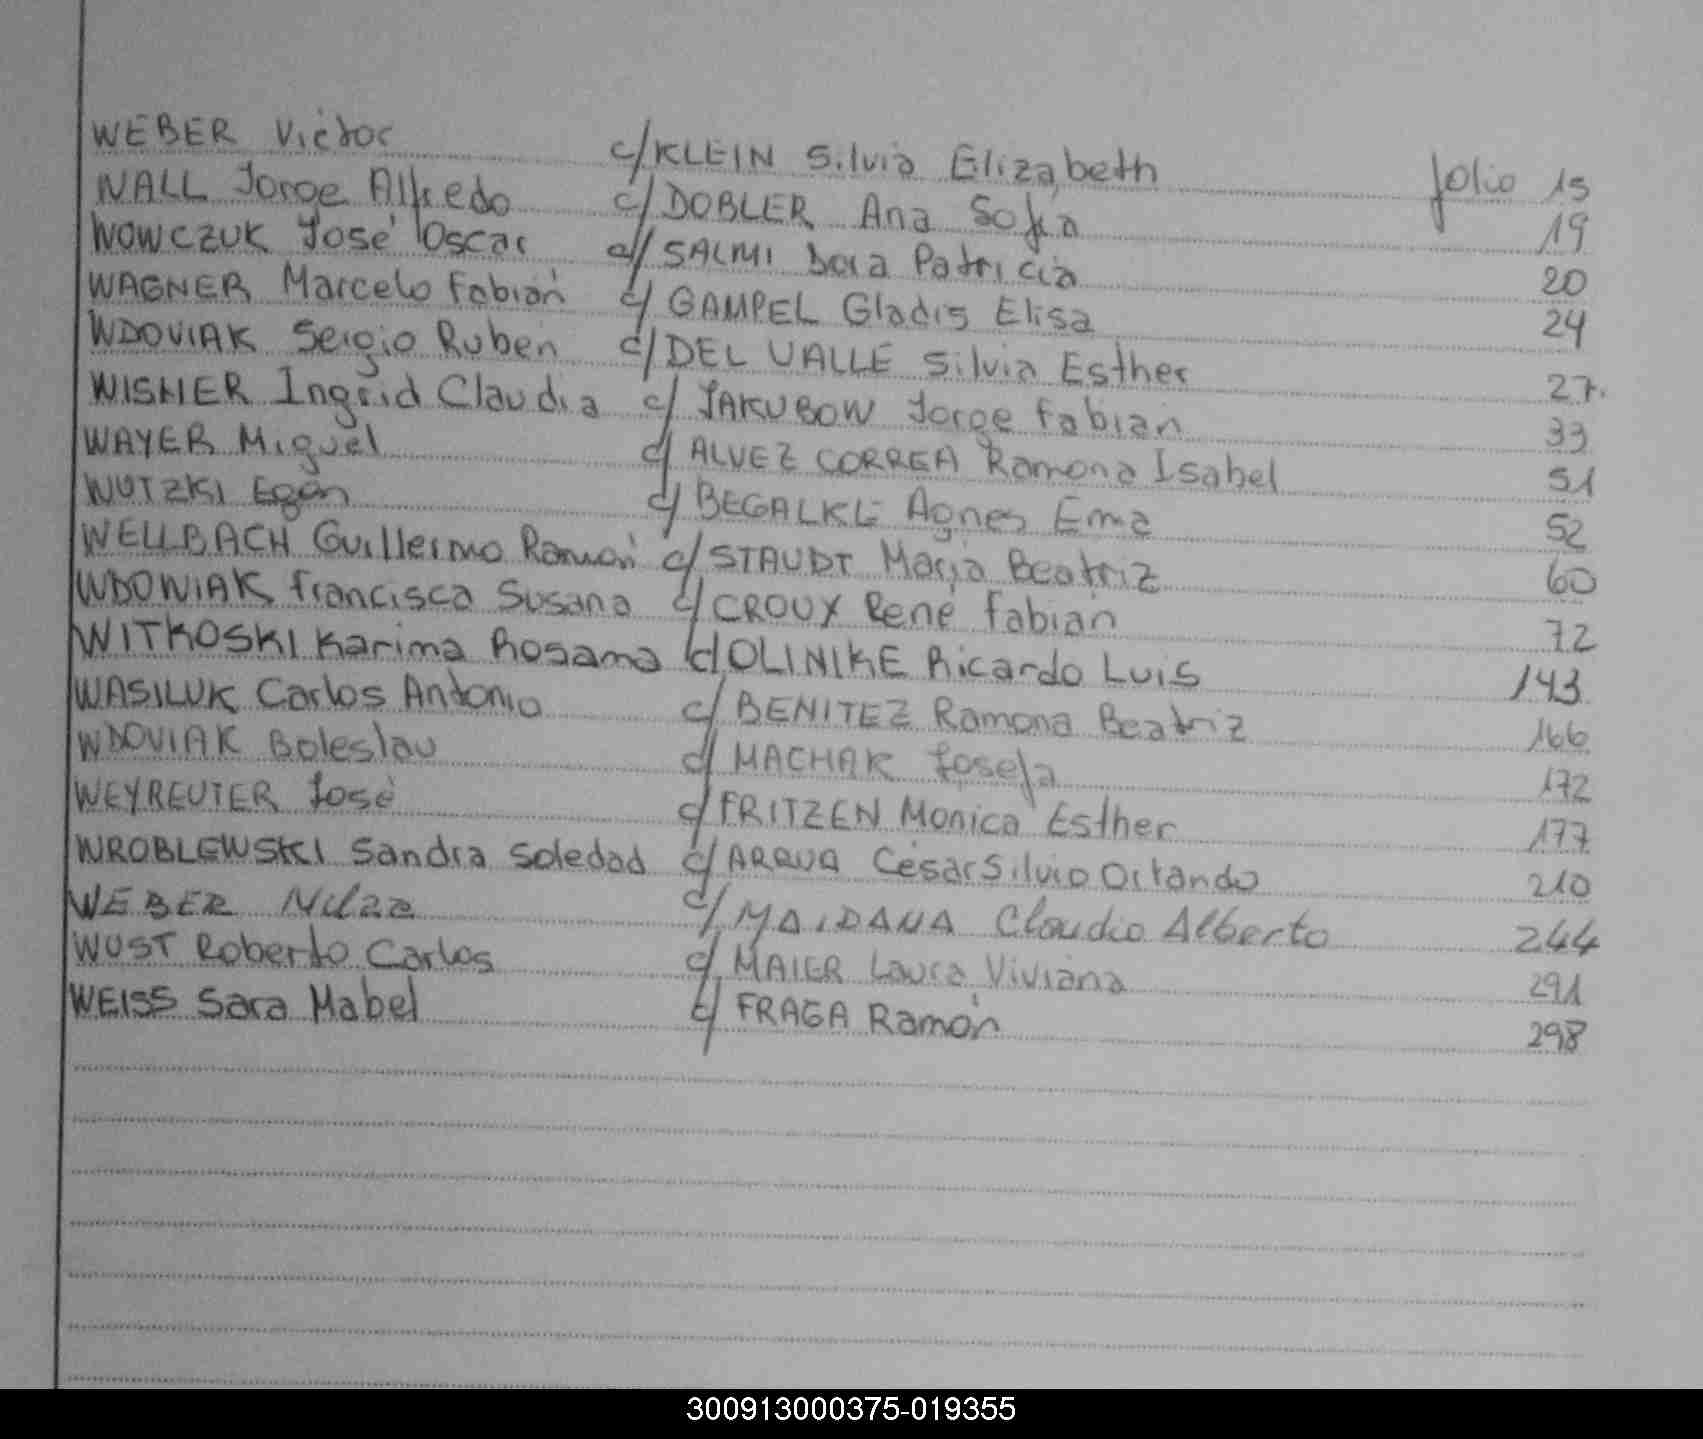 WEBER Victor c/ KLEIN Silvia Elizabeth folio 15
WALL Jorge Alfredo c/ DOBLER Ana Sofia 19
WOWCZUK José Oscar c/ SALMI Dora Patricia 20
WAGNER Marcelo Fabián c/ GAMPEL Gladis Elisa 24
WDOVIAK Sergio Ruben c/ DEL VALLE Silvia Esther 27.
WISNER Ingrid Claudia c/ JAKUBOW Jorge Fabian 33
WAYER Miguel c/ ALVEZ CORREA Ramona Isabel 51
WUTZKI Egon c/ BEGALKE Agnes Ema 52
WELLBACH Guillermo Ramón c/ STAUDT Maria Beatriz 60
WDOWIAK Francisca Susana c/ CROUX René Fabián 72
WITKOSKI Karima Rosama c/ OLINIKE Ricardo Luis 143
WASILUK Carlos Antonio c/ BENITEZ Ramona Beatriz 166
WDOVIAK Boleslau c/ MACHAK Josefa 172
WEYREUTER José c/ FRITZEN Monica Esther 177
WROBLEWSKI Sandra Soledad c/ ARQUA César Silvio Orlando 210
WEBER Nilza c/ MAIDANA Claudio Alberto 244
WUST Roberto Carlos c/ MAIER Laura Viviana 291
WEISS Sara Mabel c/ FRAGA Ramón 298
300913000375-019355